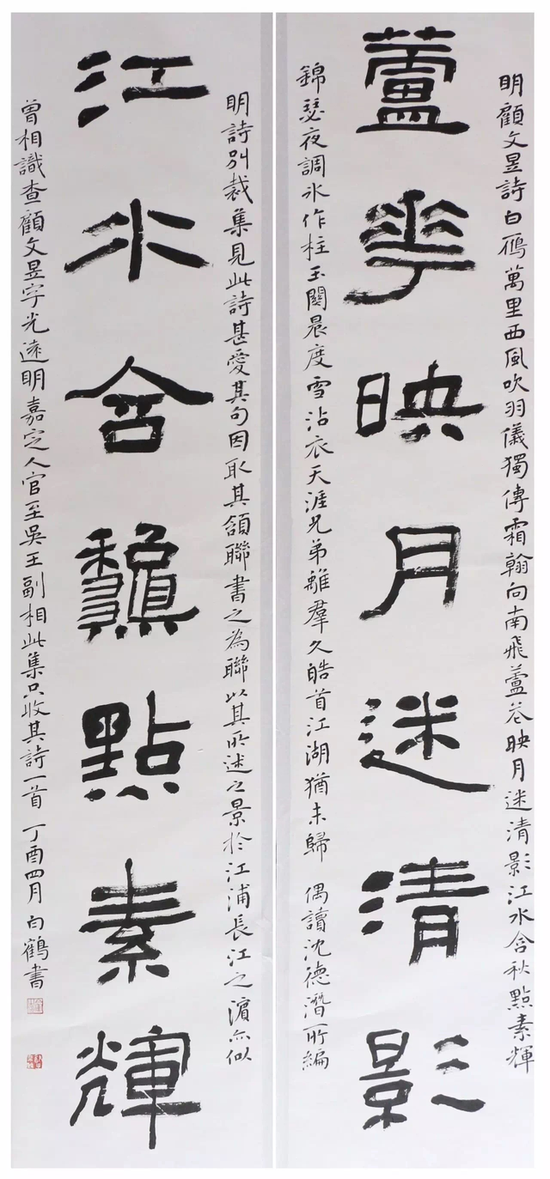 明顧文昱詩白鴈萬里西風吹羽儀獨傳霜翰向南飛蘆花映月迷清影江水含秋點素輝
蘆華映月迷清影
錦瑟夜調冰作柱玉關晨度雪沾衣天涯兄弟離羣久皓首江湖猶未歸 偶讀沈德潛所編
明詩別裁集見此詩甚愛其句因取其頷聯書之為聯以其所述之景於江浦長江之濱亦似
江水含龝點素輝
曾相識查顧文昱字光遠明嘉定人官至吳王副相此集只收其詩一首 丁酉四月 白鶴書